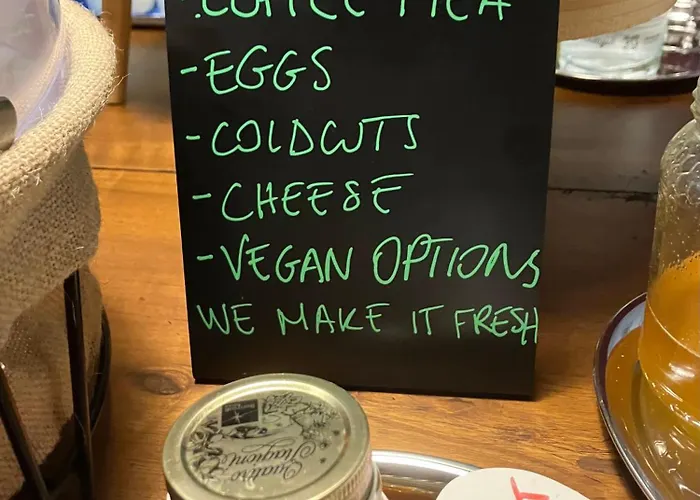 -EGGS
-COLDCUTS
-CHEESE
-VEGAN OPTIONS
WE MAKE IT FRESH
Quattro
Stagioni